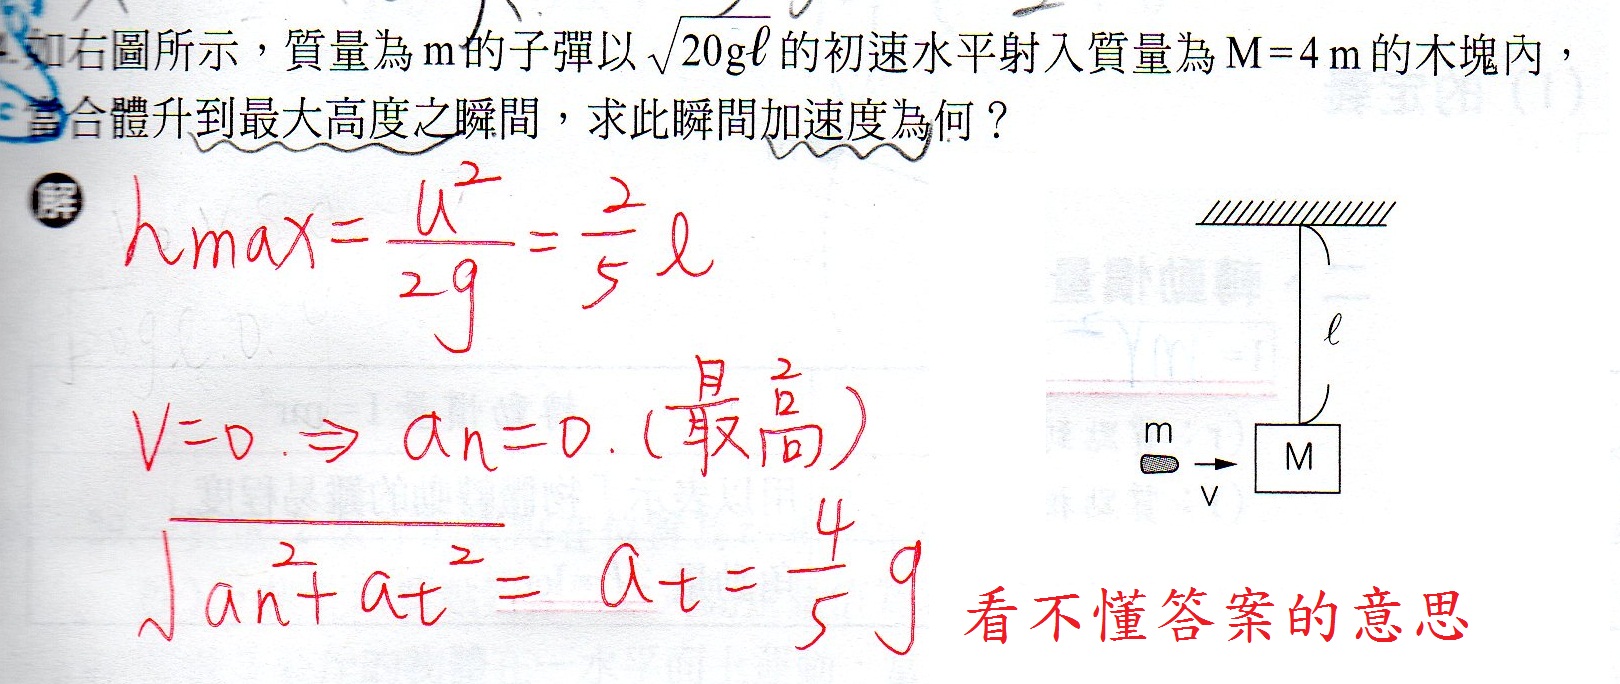 如右圖所示，質量為m的子彈以√20gℓ的初速水平射入質量為M=4m的木塊內，
當合體升到最大高度之瞬間，求此瞬間加速度為何？
解
hmax = u²/2g = 2/5 ℓ
V=0. ⇒ an=0. (最高)
√an²+at² = at = 4/5 g
看不懂答案的意思
ℓ
m
M
V